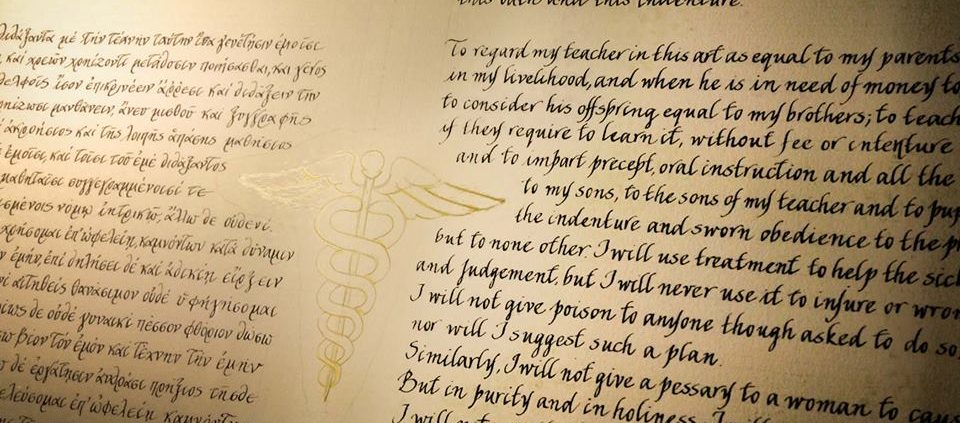 διδάξαντά με τὴν τέχνην ταύτην ἴσα γενέτῃσιν ἐμοῖσι
καὶ χρεῶν χρηίζοντι μετάδοσιν ποιήσασθαι, καὶ γένος
ἴσον ἐπικρινέειν ἄρρεσι καὶ διδάξειν τὴν
μανθάνειν, ἄνευ μισθοῦ καὶ ξυγγραφῆς
ἀκροήσιος καὶ τῆς λοιπῆς ἁπάσης μαθήσιος
ἐμοῖσι, καὶ τοῖσι τοῦ ἐμὲ διδάξαντος
μαθηταῖσι συγγεγραμμένοισί τε
νόμῳ ἰητρικῷ, ἄλλῳ δὲ οὐδενί.
χρήσομαι ἐπ' ὠφελείῃ καμνόντων κατὰ δύναμιν
ἐμὴν, ἐπὶ δηλήσει δὲ καὶ ἀδικίῃ εἴρξειν
αἰτηθεὶς θανάσιμον οὐδὲ ὑφηγήσομαι
δὲ οὐδὲ γυναικὶ πεσσὸν φθόριον δώσω
βίον τὸν ἐμὸν καὶ τέχνην τὴν ἐμὴν
δὲ ἐργάτῃσιν ἀνδράσι πρήξιος τῆσδε
ἐπ' ὠφελείῃ καμνόντων
this oath and this indenture.
To regard my teacher in this art as equal to my parents
in my livelihood, and when he is in need of money to
to consider his offspring equal to my brothers; to teach
if they require to learn it, without fee or intenture
and to impart precept, oral instruction and all the
to my sons, to the sons of my teacher and to pup
the indenture and sworn obedience to the p
but to none other. I will use treatment to help the sick
and judgement, but I will never use it to injure or wron
I will not give poison to anyone though asked to do so,
nor will I suggest such a plan.
Similarly, I will not give a pessary to a woman to caus
But in purity and in holiness I will
I will not